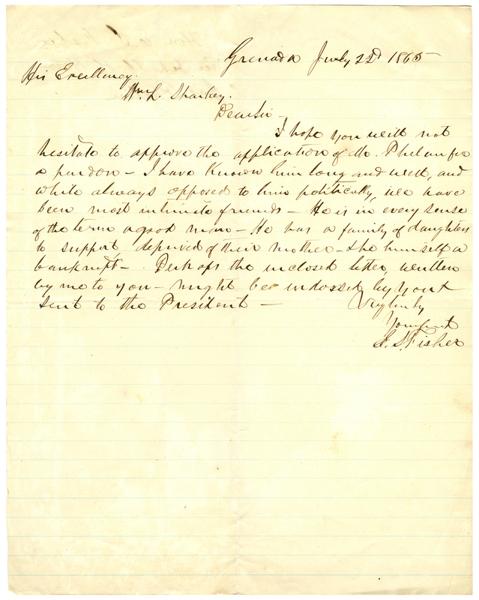 Grenada July 22d 1865
His Excellency
Wm. L. Sharkey.
Dear Sir -
I hope you will not
hesitate to approve the application of Mr. Phelan for
a pardon - I have known him long and well, and
while always opposed to him politically, we have
been most intimate friends - He is in every sense
of the term a good man - He has a family of daughters
to support deprived of their mother - & he himself a
bankrupt - Perhaps the inclosed letter, written
by me to you - might be indossed by you &
sent to the President -
Very truly
Your
S. Fisher